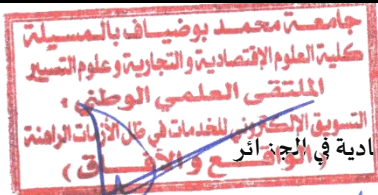 جامعة محمد بوضياف بالمسيلة
كلية العلوم الإقتصادية والتجارية وعلوم التسيير
الملتقى العلمي الوطني :
التسويق الإلكتروني للخدمات في ظل الأزمات الراهنة
ادية في الجزائر
( الواقع والآفاق )